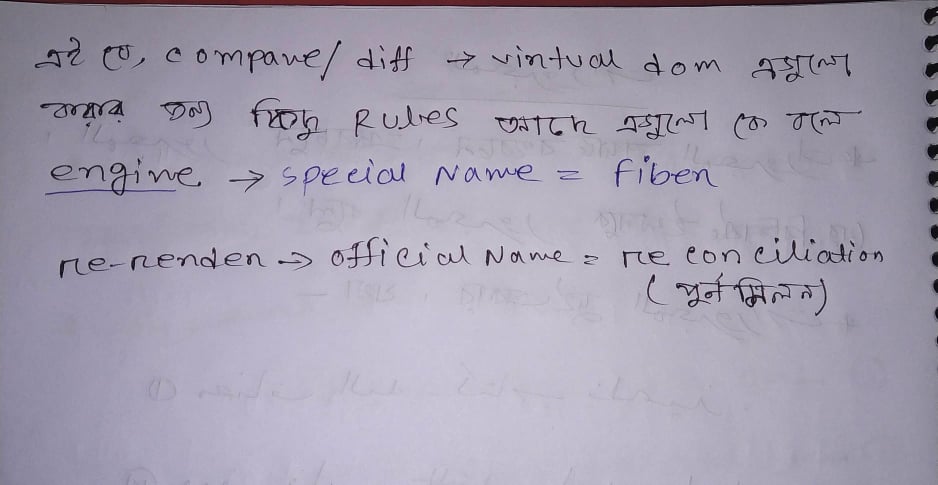 এই যে, compare/ diff → virtual dom এগুলো
করার জন্য কিছু Rules আছে এগুলো কে বলে
engine → special Name = fiber
re-render → official Name = re conciliation
(পুর্ন মিলন)